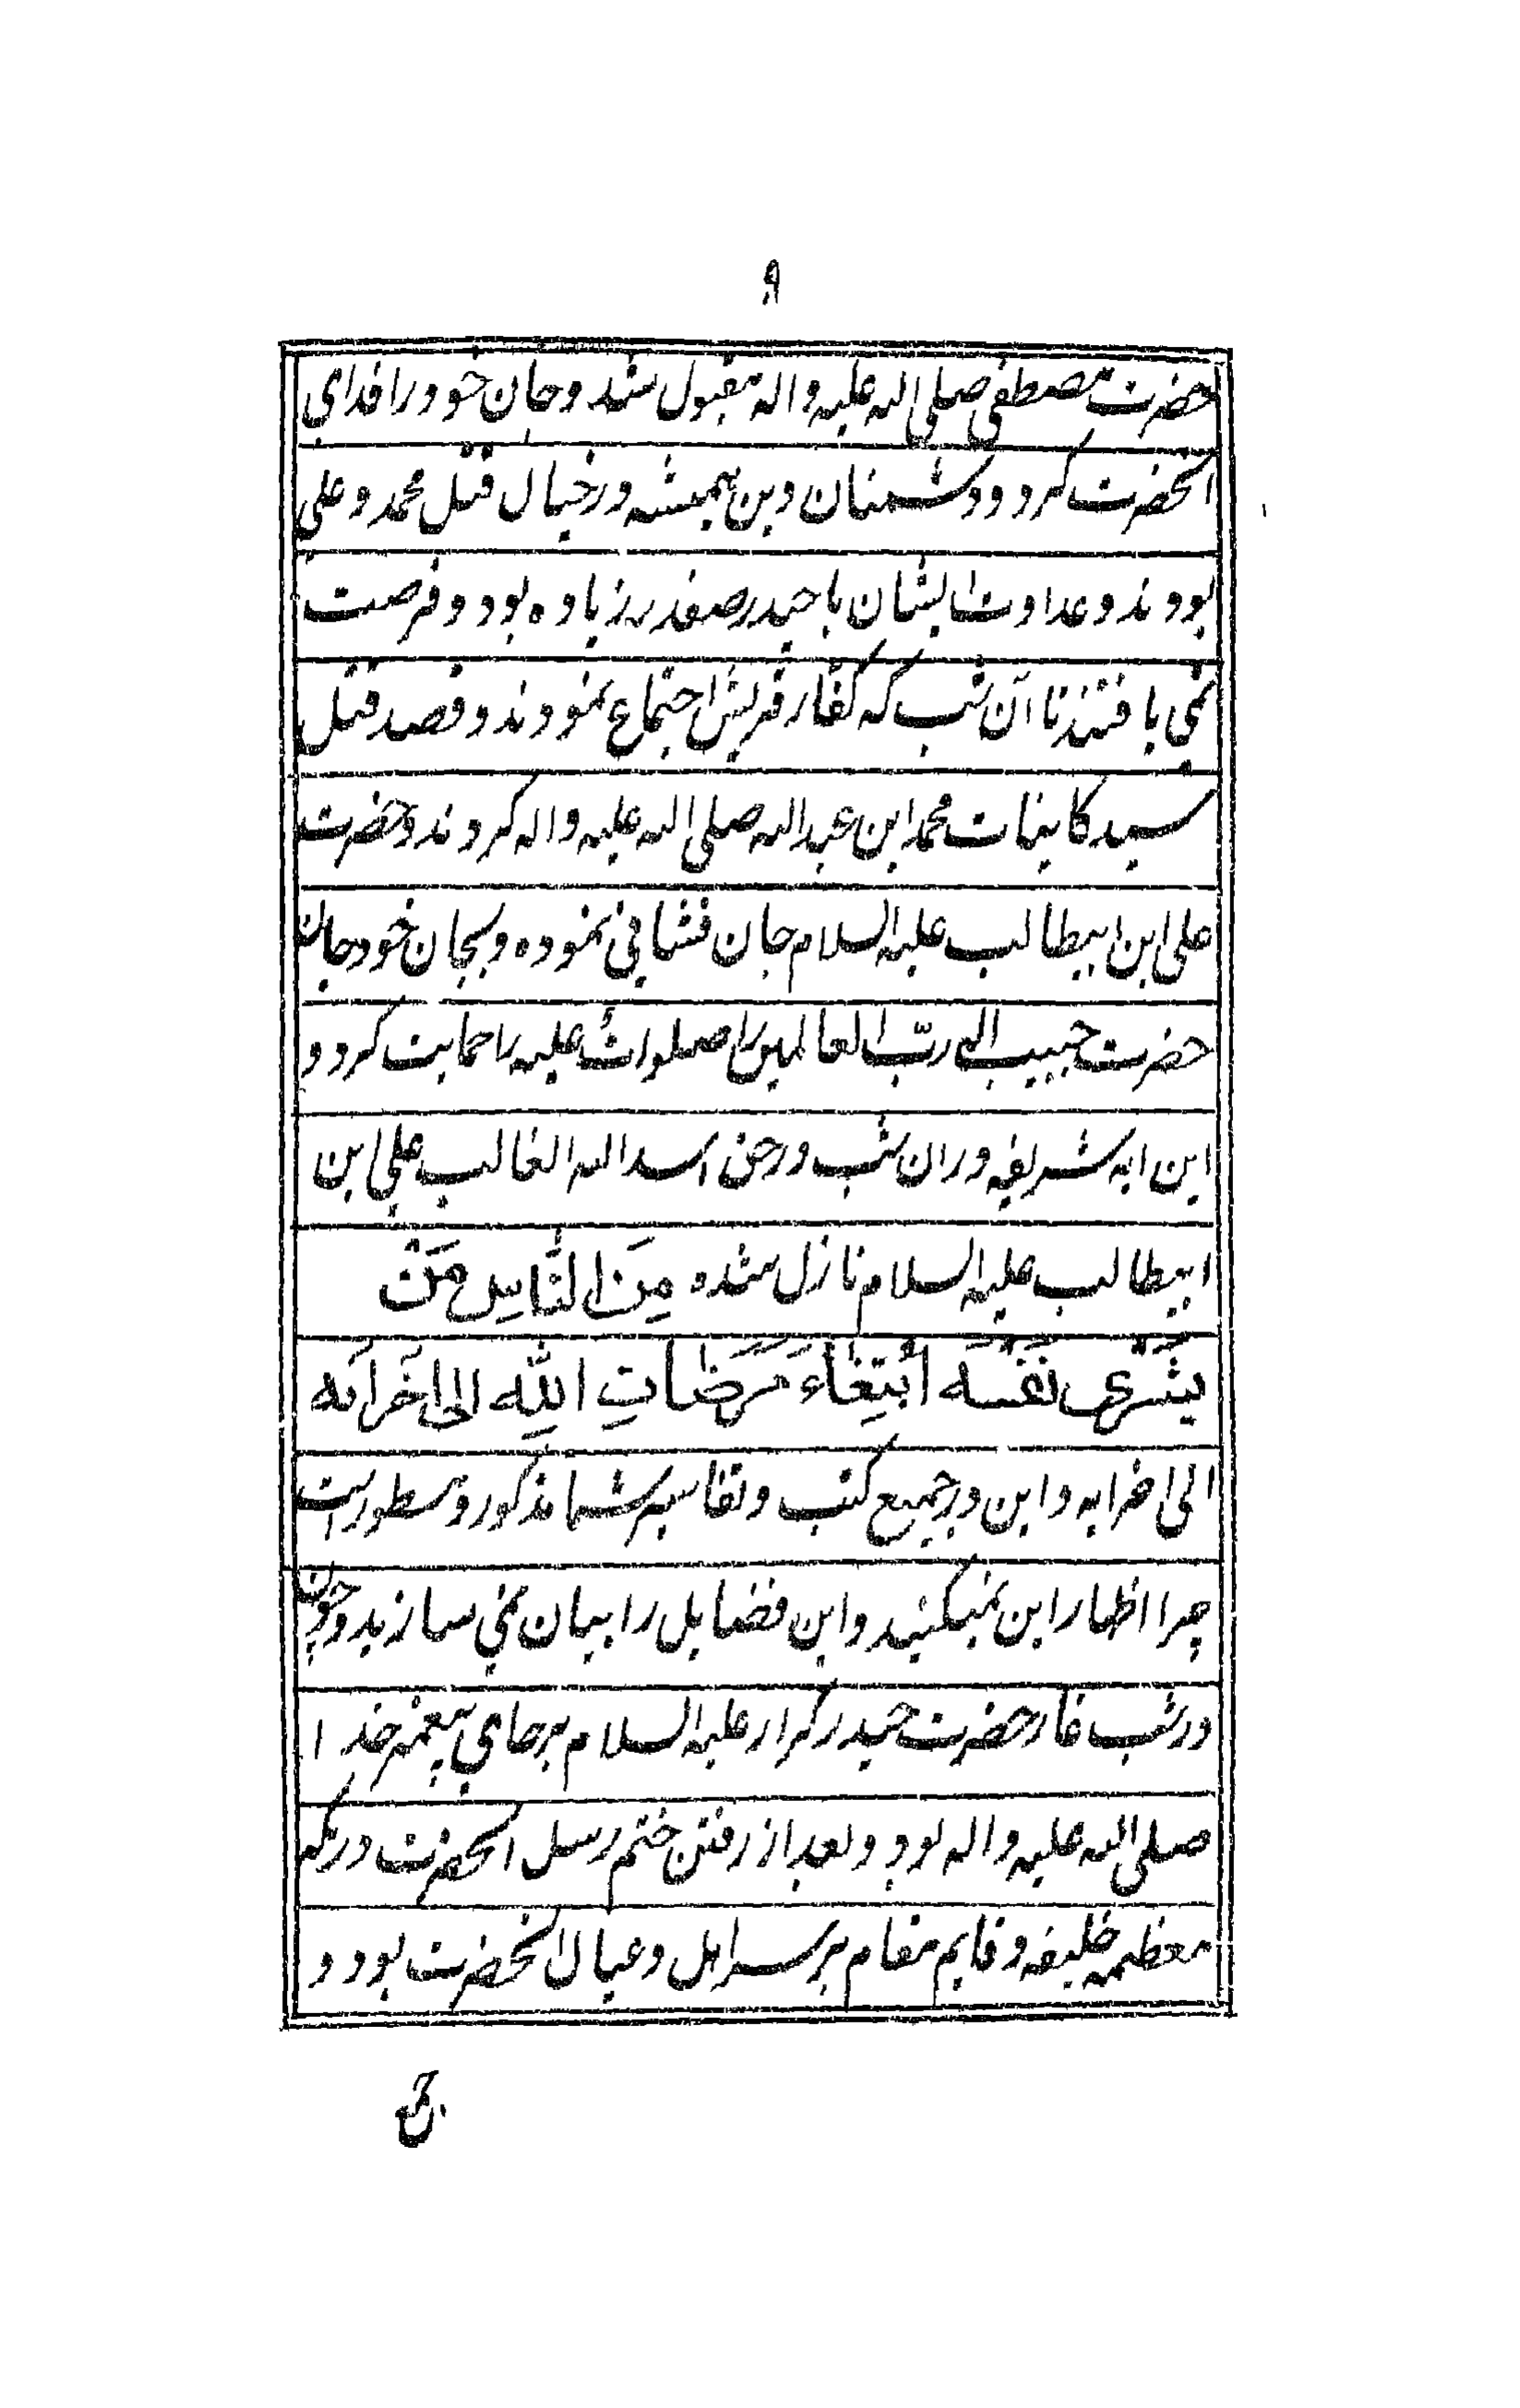 ۹
حضرت مصطفی صلی الله علیه واله مقبول شد و جان خود را فدای
آنحضرت کرد و دشمنان دین همیشه در خیال قتل محمد و علی
بودند و عداوت ایشان با حیدر صفدر زیاده بود و فرصت
نمی یافتند تا آن شب که کفار قریش اجتماع نمودند و قصد قتل
سید کاینات محمد ابن عبدالله صلی الله علیه واله کردند و حضرت
علی ابن ابیطالب علیه السلام جان فشانی نموده و بجان خود جان
حضرت حبیب اله ربّ العالمین را صلوات علیه را حمایت کرد و
این ایه شریفه در ان شب در حق اسد الله الغالب علی ابن
ابیطالب علیه السلام نازل شده مِنَ النَّاسِ مَنْ
یَشْرِی نَفْسَهُ ابْتِغَاءَ مَرْضَاتِ اللّٰهِ الی اخَرایَه
الی اخرایه و این در جمیع کتب و تفاسیر شما مذکور و مسطور است
چرا اظهار این نمیکنید و این فضایل را بیان نمی سازید و چون
در شب غار حضرت حیدر کرار علیه السلام بر جای پیغمبر خدا
صلی الله علیه واله بود و بعد از رفتن ختم رسل آنحضرت در مکه
معظمه خلیفه و قایم مقام بر سر اهل و عیال آنحضرت بود و